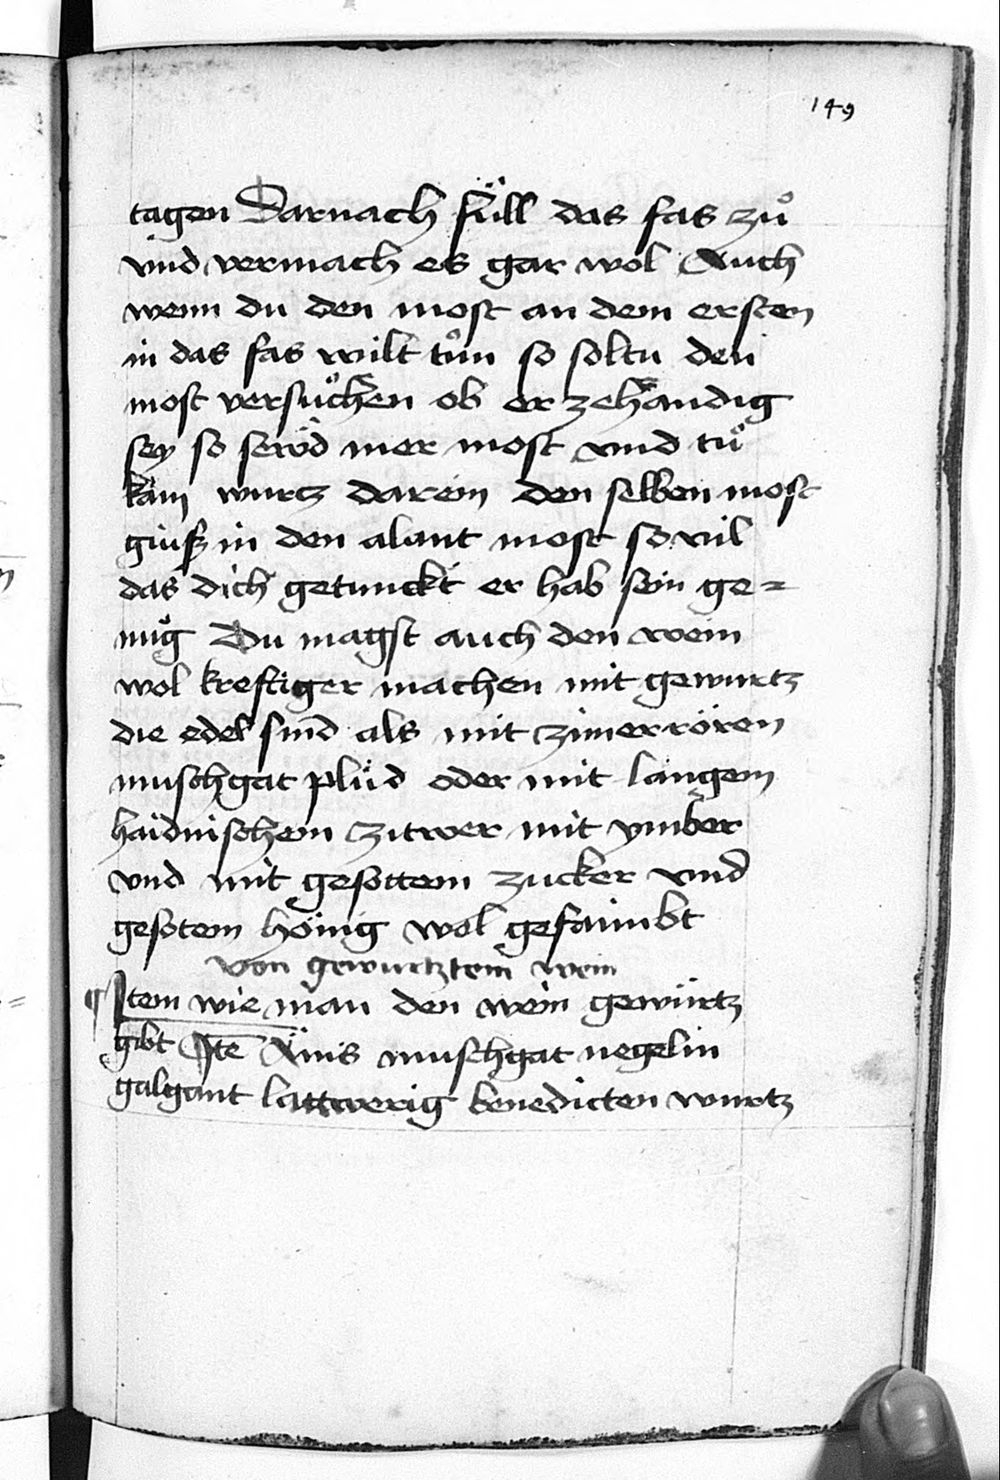 149
tagen Darnach füll das fas zů
vnd vermach es gar wol Auch
wenn du den most an dem ersten
in das fas wilt tůn so soltu den
most versůchen ob er ze händig
sey so seröd mer most vnd tů
kain wurtz darein den selben most
giuß in den alant most so vil
das dich getunckt er hab sein ge=
nůg Du magst auch den wein
wol kreftiger machen mit gewurtz
die edel sind als mit zimerrören
muschgat plüd oder mit langem
haidnischem zitwer mit ymber
vnd mit gesottem zucker vnd
gesotem hönig wol gefaimbt
von gewurtztem wein
¶ Item wie man den wein gewürtz
gibt Itē Änis muschgat negelin
galgant lattwerig benedicten wurtz